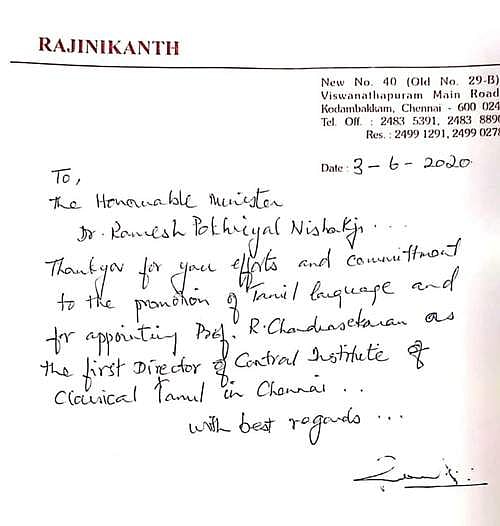 RAJINIKANTH
New No. 40 (Old No. 29-B)
Viswanathapuram Main Road
Kodambakkam, Chennai - 600 024
Tel. Off. : 2483 5391, 2483 8890
Res. : 2499 1291, 2499 0278
Date : 3-6-2020
To,
the Honourable Minister
Dr. Ramesh Pokhriyal Nishakji...
Thankyou for your efforts and committment
to the promotion of Tamil language and
for appointing Prof. R. Chandrasekaran as
the first Director of Central Institute of
Classical Tamil in Chennai..
with best regards...